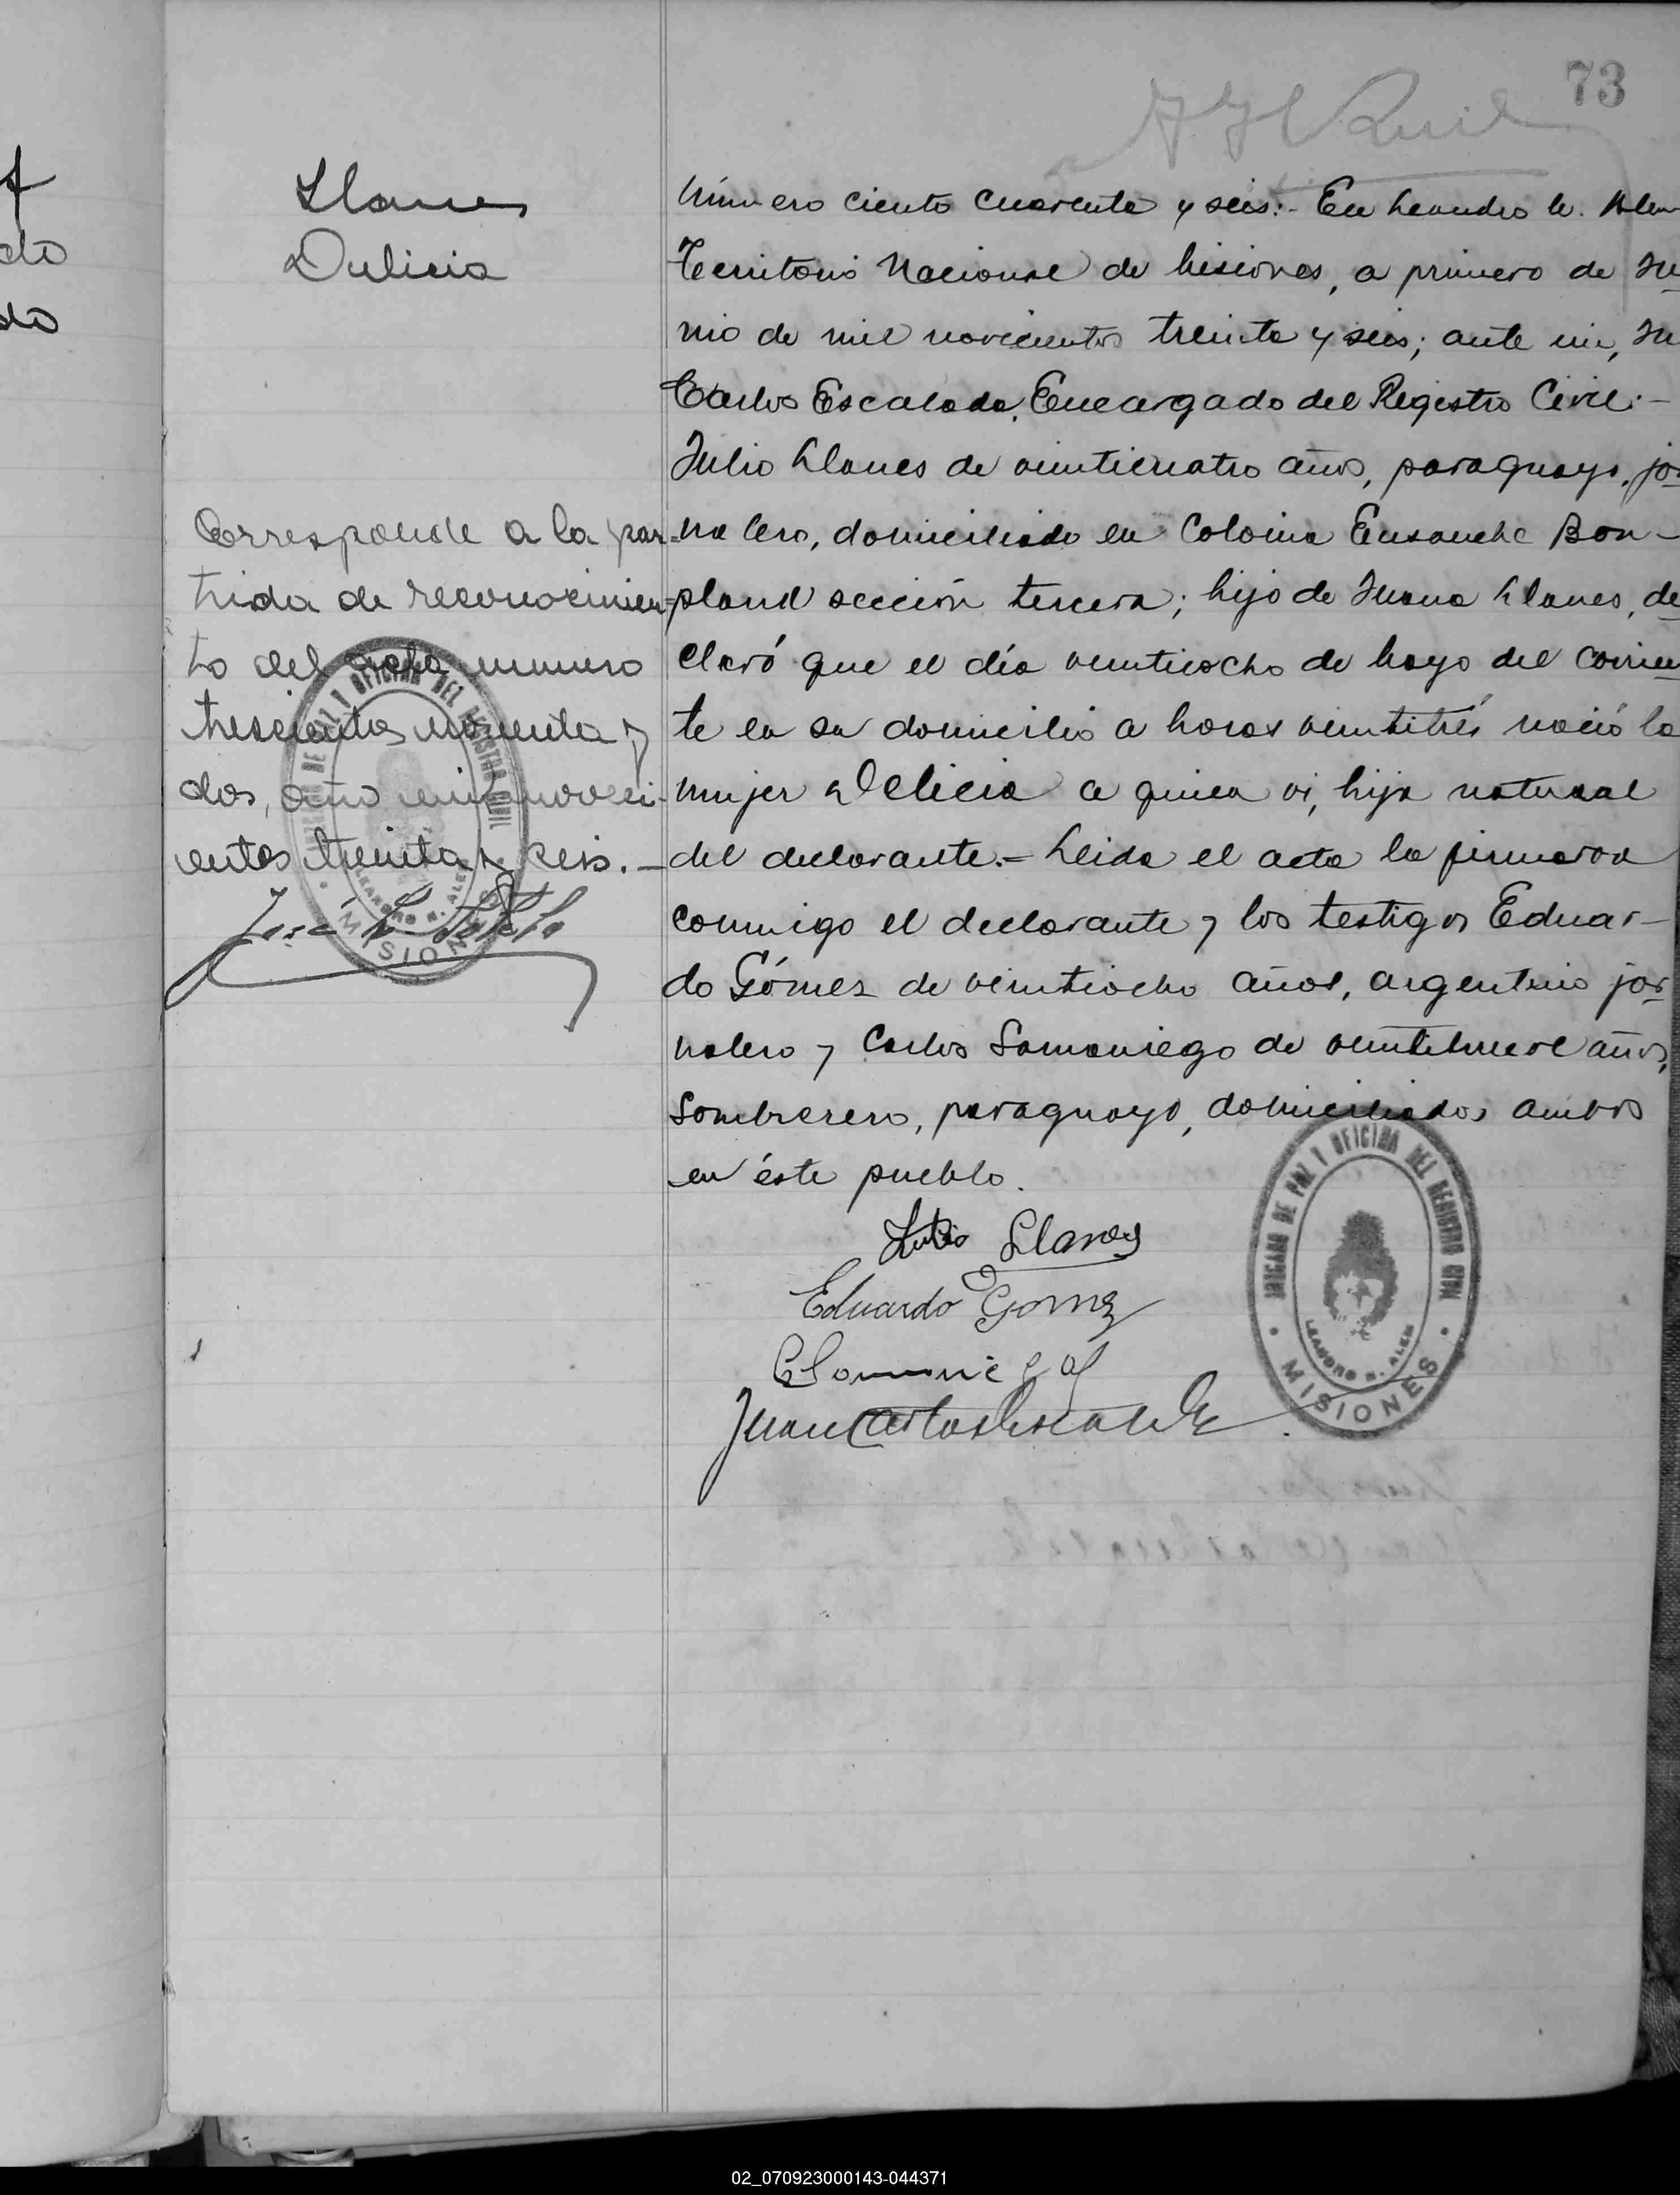 73
Llanes
Dulicia
Número ciento cuarenta y seis:- En Leandro N. Alem
Territorio Nacional de Misiones, a primero de Ju
nio de mil novecientos treinta y seis; ante mi, Ju
Carlos Escalada, Encargado del Registro Civil:-
Julio Llanes de veinticuatro años, paraguayo, jor
nalero, domiciliado en Colonia Ensanche Bon-
pland sección tercera; hijo de Juana Llanes, de
claró que el día veintiocho de Mayo del corrien
te en su domicilio a horas veintitrés nació la
mujer Delicia a quien vi, hija natural
del declarante.= Leida el acta la firmaron
conmigo el declarante y los testigos Eduar-
do Gómez de veintiocho años, argentino jor
nalero y Carlos Samaniego de veintinueve años,
sombrerero, paraguayo, domiciliados ambos
en éste pueblo.
Corresponde a la par=
tida de reconocimien=
to del acta numero
trescientos noventa y
dos, año mil noveci-
entos treinta y seis.-
Julio Llanes
Eduardo Gomez
CSamaniego
Juan Carlos Escalada
JUZGADO DE PAZ Y OFICINA DEL REGISTRO CIVIL
LEANDRO N. ALEM
• MISIONES •
JUZGADO DE PAZ Y OFICINA DEL REGISTRO CIVIL
LEANDRO N. ALEM
• MISIONES •
do
02_070923000143-044371